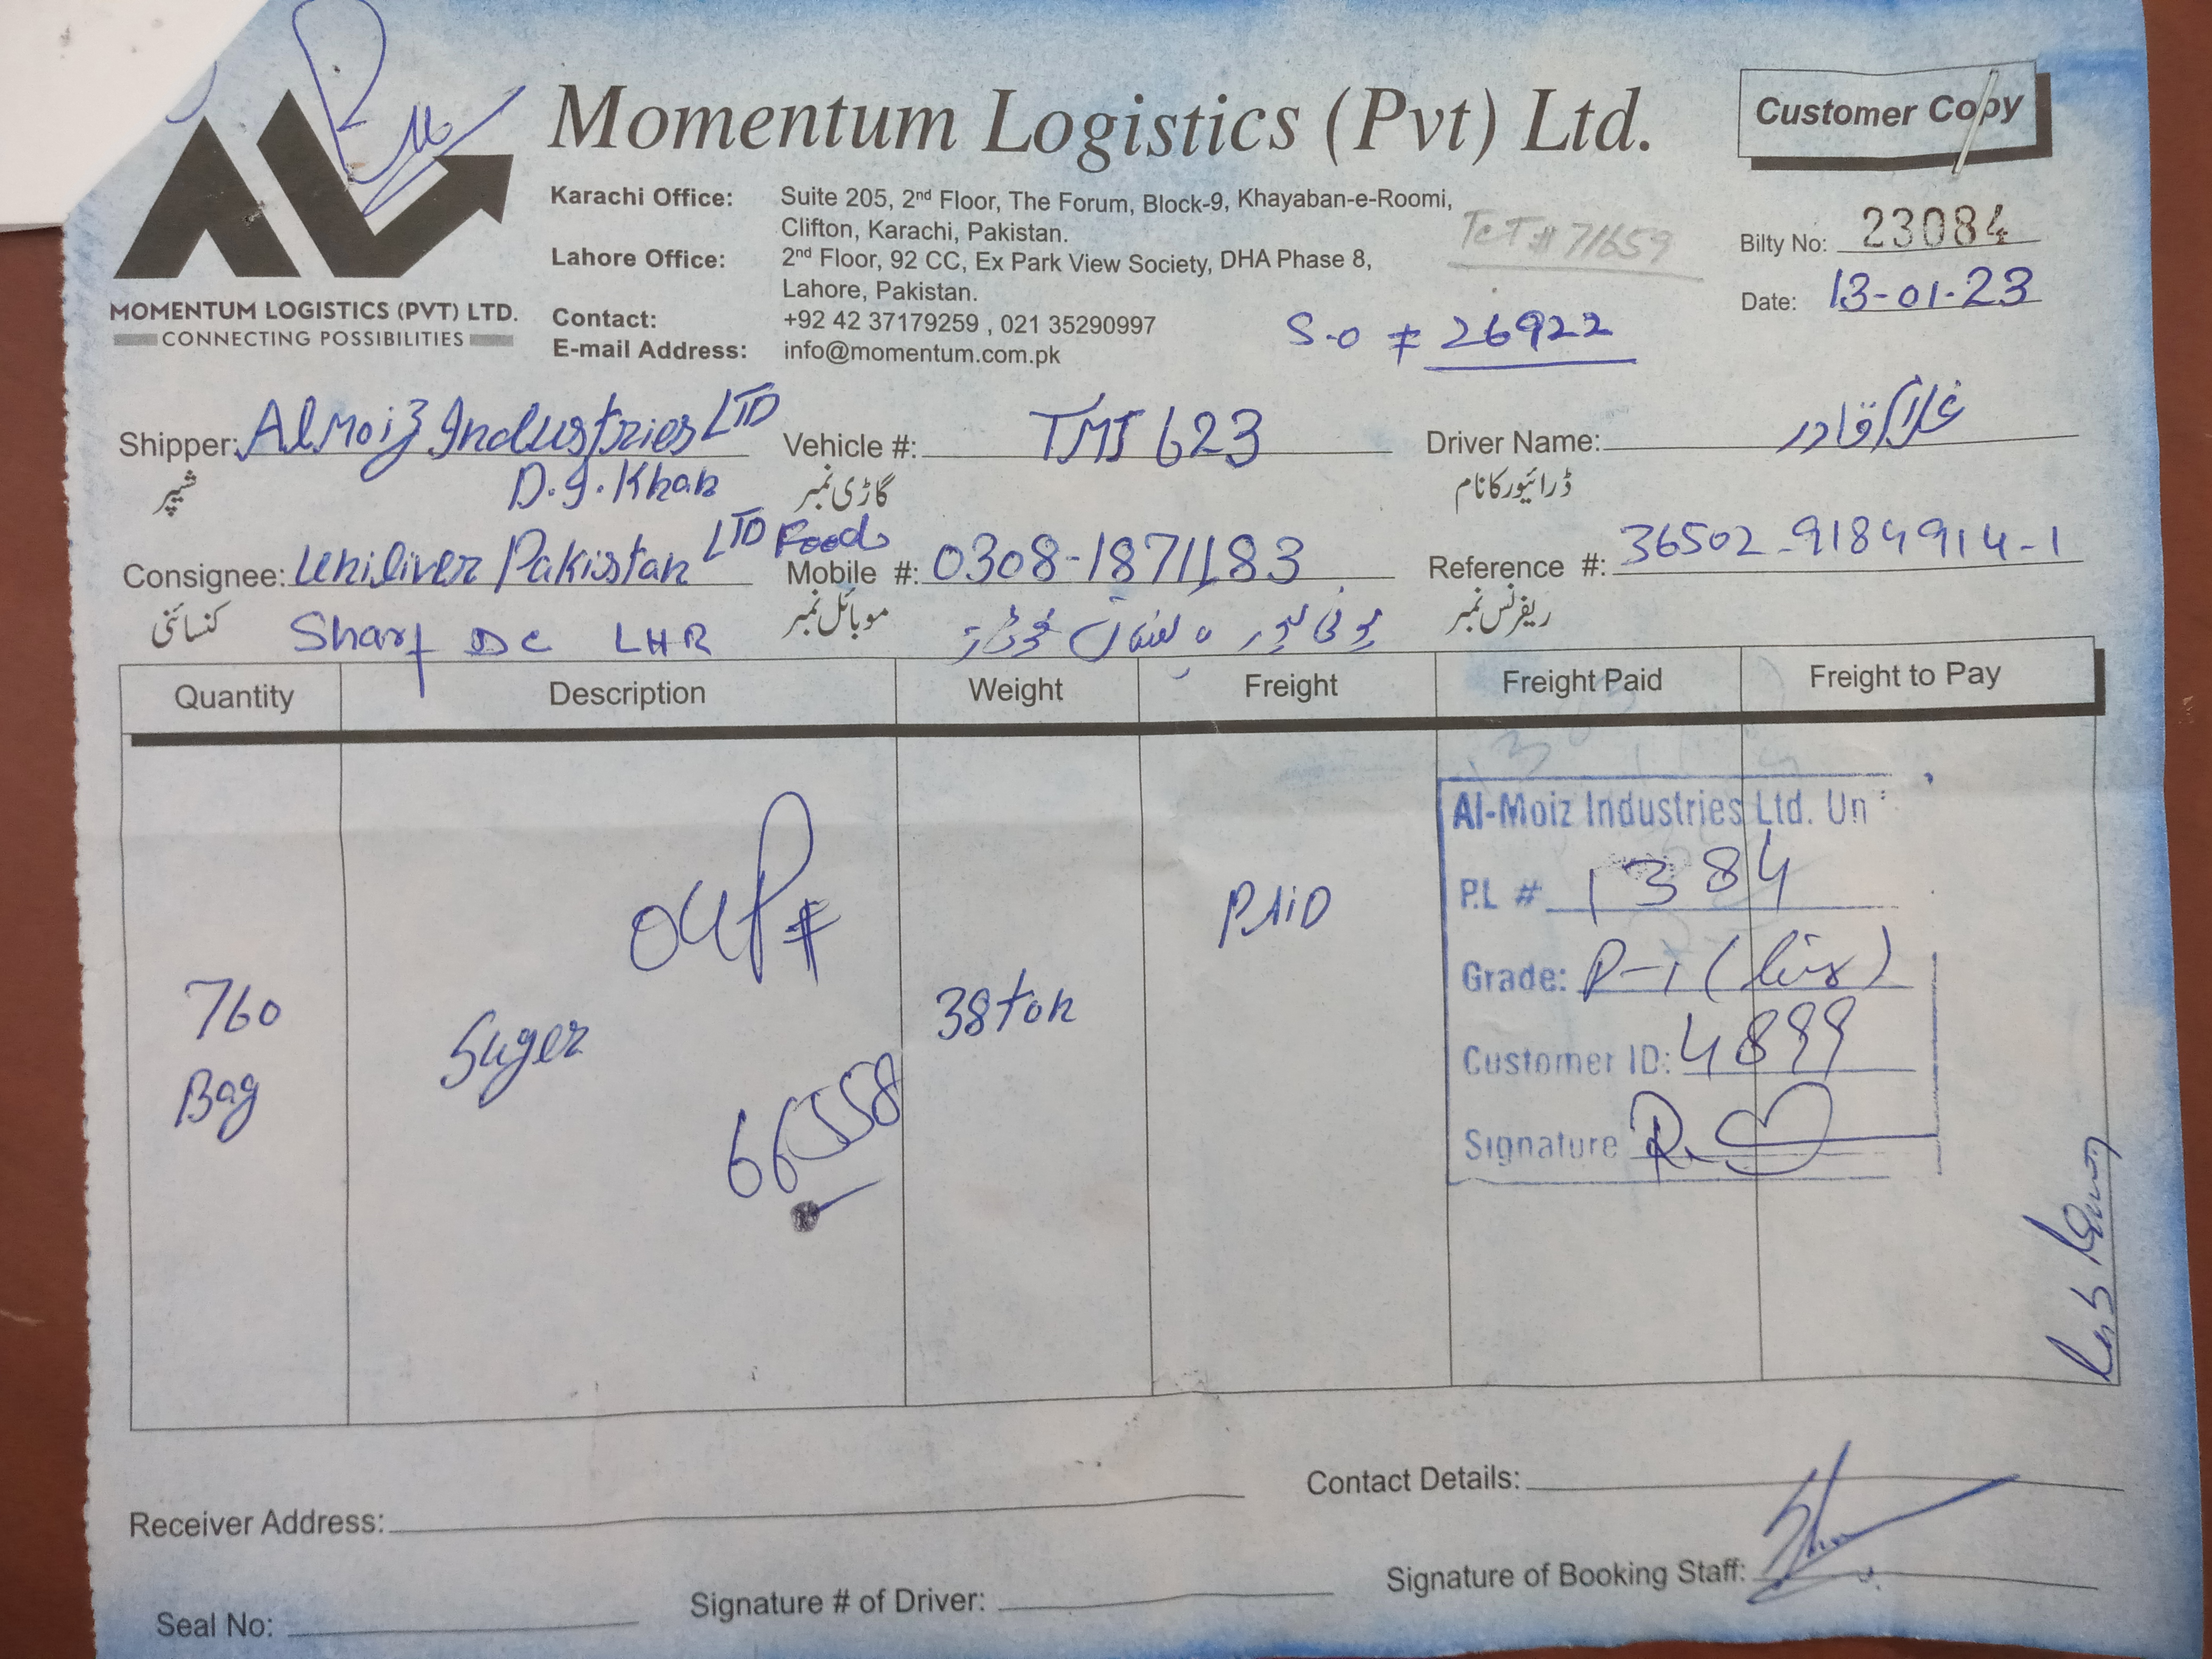 Momentum Logistics (Pvt) Ltd.
Customer Copy
MOMENTUM LOGISTICS (PVT) LTD.
CONNECTING POSSIBILITIES
Karachi Office: Suite 205, 2nd Floor, The Forum, Block-9, Khayaban-e-Roomi,
Clifton, Karachi, Pakistan.
Lahore Office: 2nd Floor, 92 CC, Ex Park View Society, DHA Phase 8,
Lahore, Pakistan.
Contact: +92 42 37179259 , 021 35290997
E-mail Address: info@momentum.com.pk
TCT # 71659
S-O # 26922
Bilty No: 23084
Date: 13-01-23
Shipper: AlMoiz Industries LTD Vehicle #: TMJ 623 Driver Name: غلام قادر
شپر D.I.Khan گاڑی نمبر ڈرائیور کا نام
Consignee: Uniliver Pakistan LTD Foods Mobile #: 0308-1871183 Reference #: 36502-9184914-1
کنسائنی Sharf DC LHR موبائل نمبر ریفرنس نمبر
Quantity Description Weight Freight Freight Paid Freight to Pay
760
Bag
Suger
OUP#
66558
38 ton
PAiD
Al-Moiz Industries Ltd. Un
P.L # 1384
Grade: P-1
Customer ID: 4899
Signature
Receiver Address:
Contact Details:
Seal No:
Signature # of Driver:
Signature of Booking Staff: